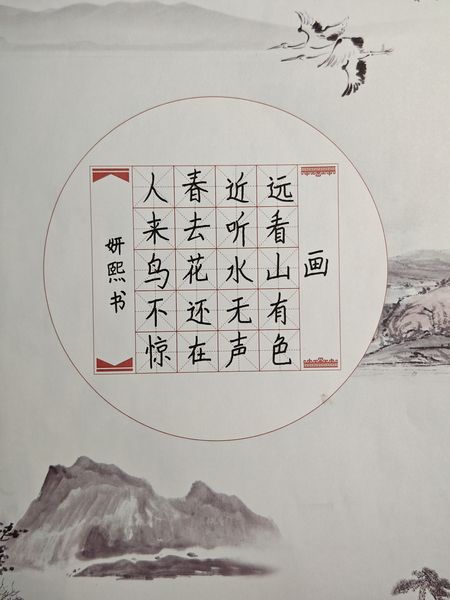 画
远看山有色
近听水无声
春去花还在
人来鸟不惊
妍熙书